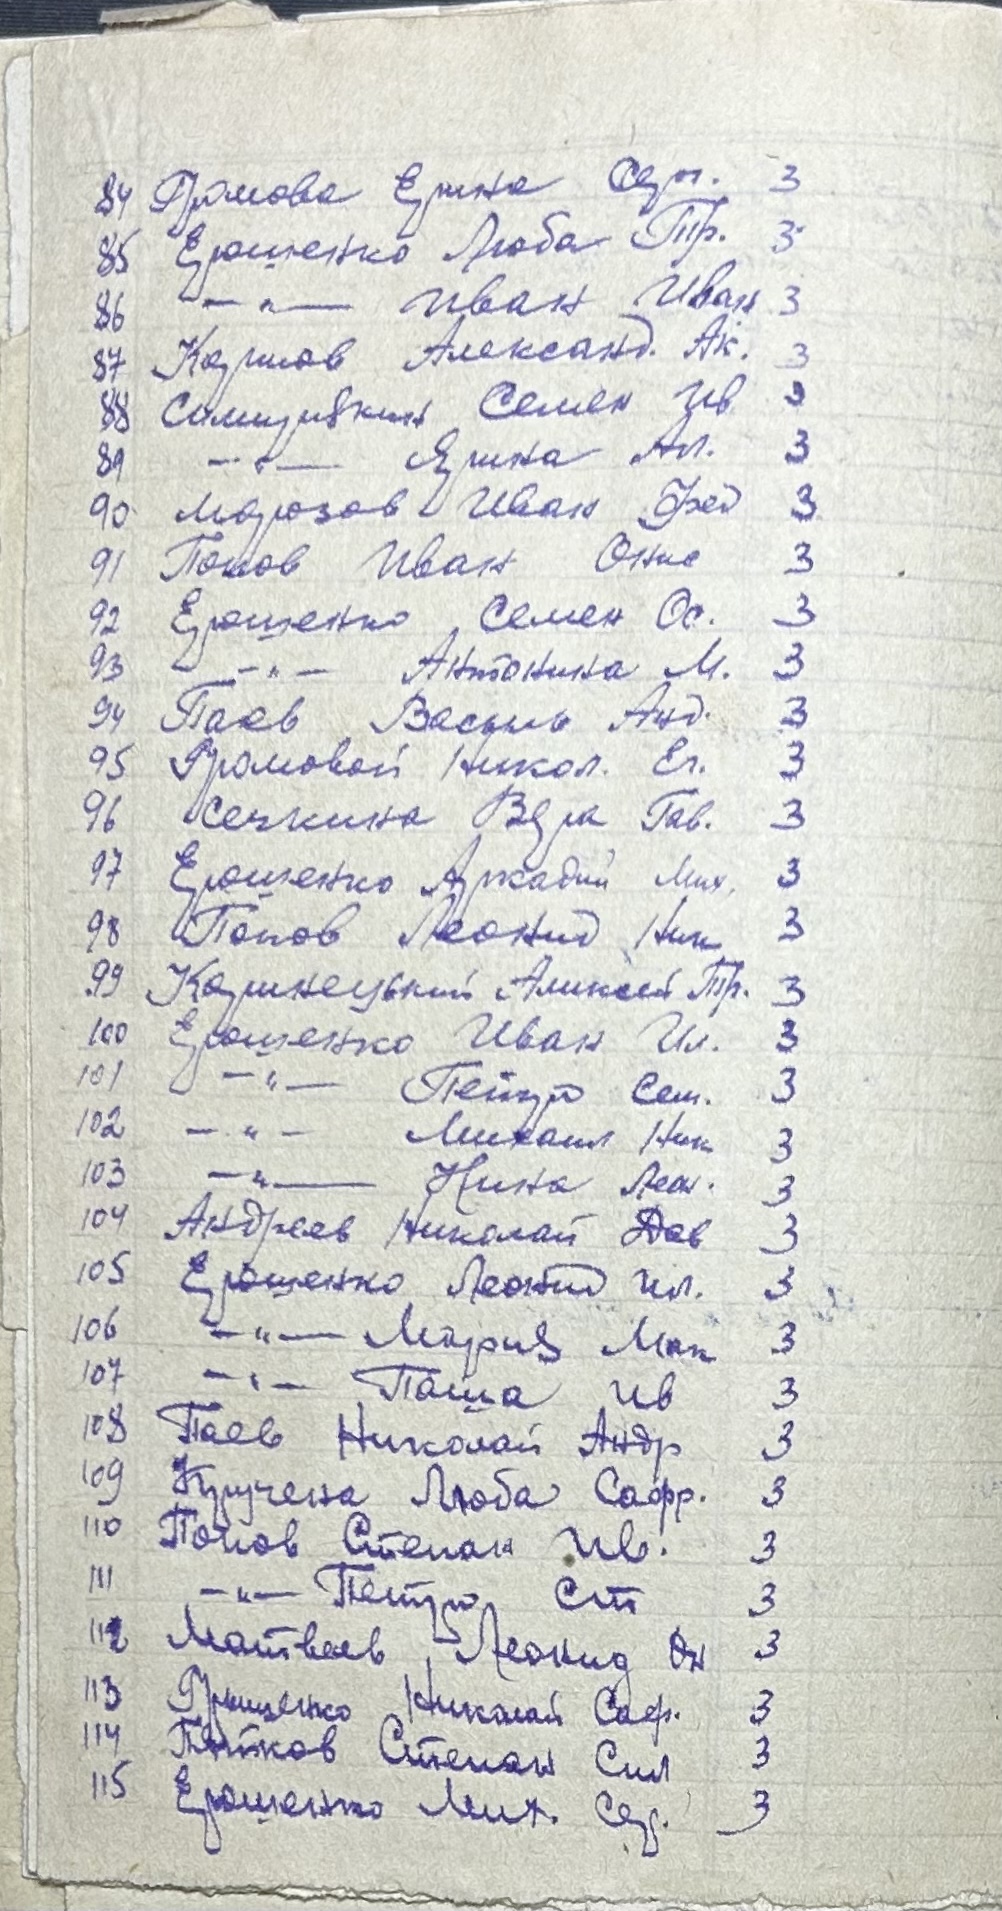 84 Громова Ерина Серг. 3
85 Ерошенко Люба Тр. 3
86 —"— Иван Иван 3
87 Карпов Александ. Ак. 3
88 Семен Ив 3
89 —"— Ярина Ал. 3
90 Морозов Иван Фед 3
91 Попов Иван Онис 3
92 Ерошенко Семен Ос. 3
93 —"— Антонина М. 3
94 Паев Василь Анд. 3
95 Громовой Никол. Ег. 3
96 Сечкина Вера Гав. 3
97 Ерошенко Аркадий Мих. 3
98 Попов Леонид Ник 3
99 Каринецький Алексей Тр. 3
100 Ерошенко Иван Ил. 3
101 —"— Петро Сем. 3
102 —"— Михаил Ник 3
103 —"— Нина Леон. 3
104 Андреев Николай Дав 3
105 Ерошенко Леонид Ил. 3
106 —"— Мария Мак 3
107 —"— Паша Ив 3
108 Паев Николай Андр 3
109 Кручена Люба Сафр. 3
110 Попов Степан Ив. 3
111 —"— Петро Ст 3
112 Матвеев Леонид Он 3
113 Грищенко Николай Саф. 3
114 Пятков Степан Сил 3
115 Ерошенко Мих. Сер. 3